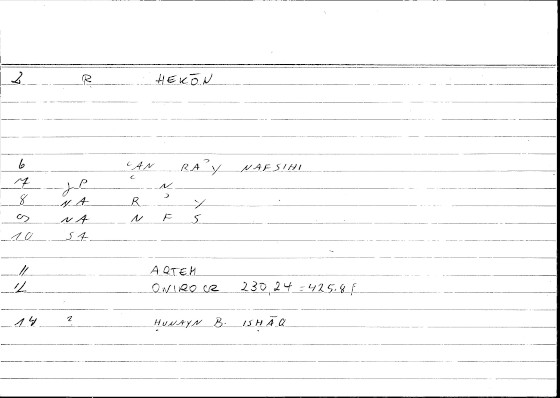 2 R HEKŌN
6 ʿAN RAʾY NAFSIHI
7 jP ʿ N
8 NA R ʾ Y
9 NA N F S
10 SA
11 ARTEM
12 ONIROCR 230,24 = 425.8f
14 2 ḤUNAYN B. ISḤĀQ